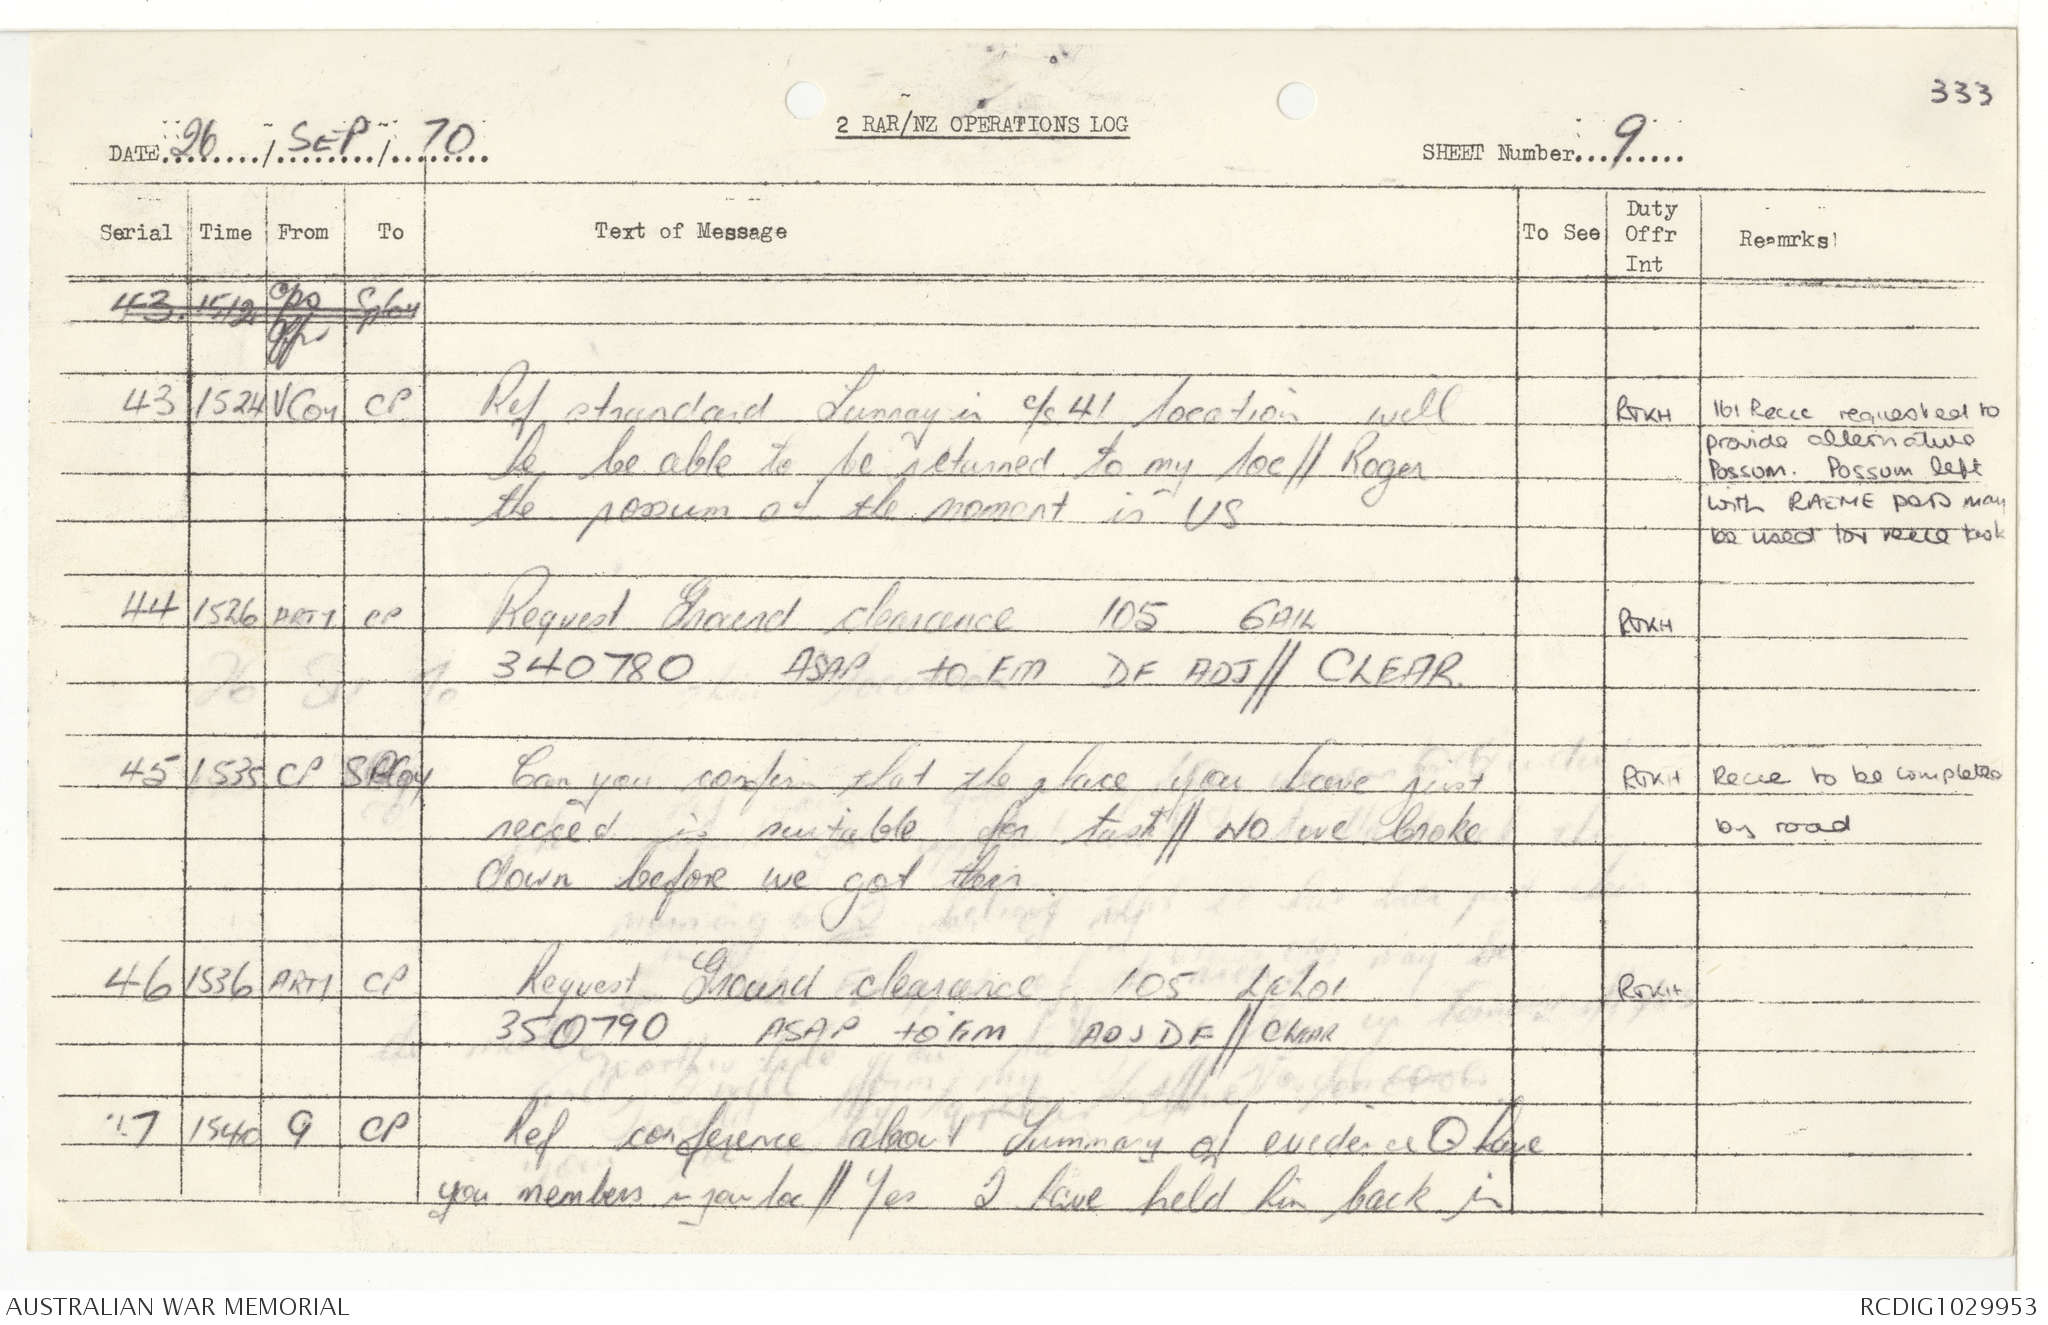 333
2 RAR/NZ OPERATIONS LOG
DATE 26 / SEP / 70
SHEET Number 9
Serial Time From To Text of Message To See Duty Offr Int Reamrks
43 1512 Ops Offr Sptcoy
43 1524 VCoy CP Ref strandard Sunray in c/s 41 location will RJKH 161 Recce requested to
be be able to be returned to my loc// Roger provide alternative
Possum. Possum left
the possum at the moment is US with RAEME pers may
be used for recce task
44 1526 ARTY CP Request Ground clearence 105 GAIL RJKH
340780 ASAP to EM DF ADJ// CLEAR.
45 1535 CP SPCoy Can you confirm that the place you have just RJKH Recce to be completed
recced is suitable for task// NO we broke by road
down before we got their
46 1536 ARTY CP Request Ground clearance 105 RJKH
350790 ASAP to EM ADJ DF// CLEAR
47 1540 9 CP Ref conference about Summary of evidence have
you members in your loc// Yes I have held him back in
AUSTRALIAN WAR MEMORIAL
RCDIG1029953